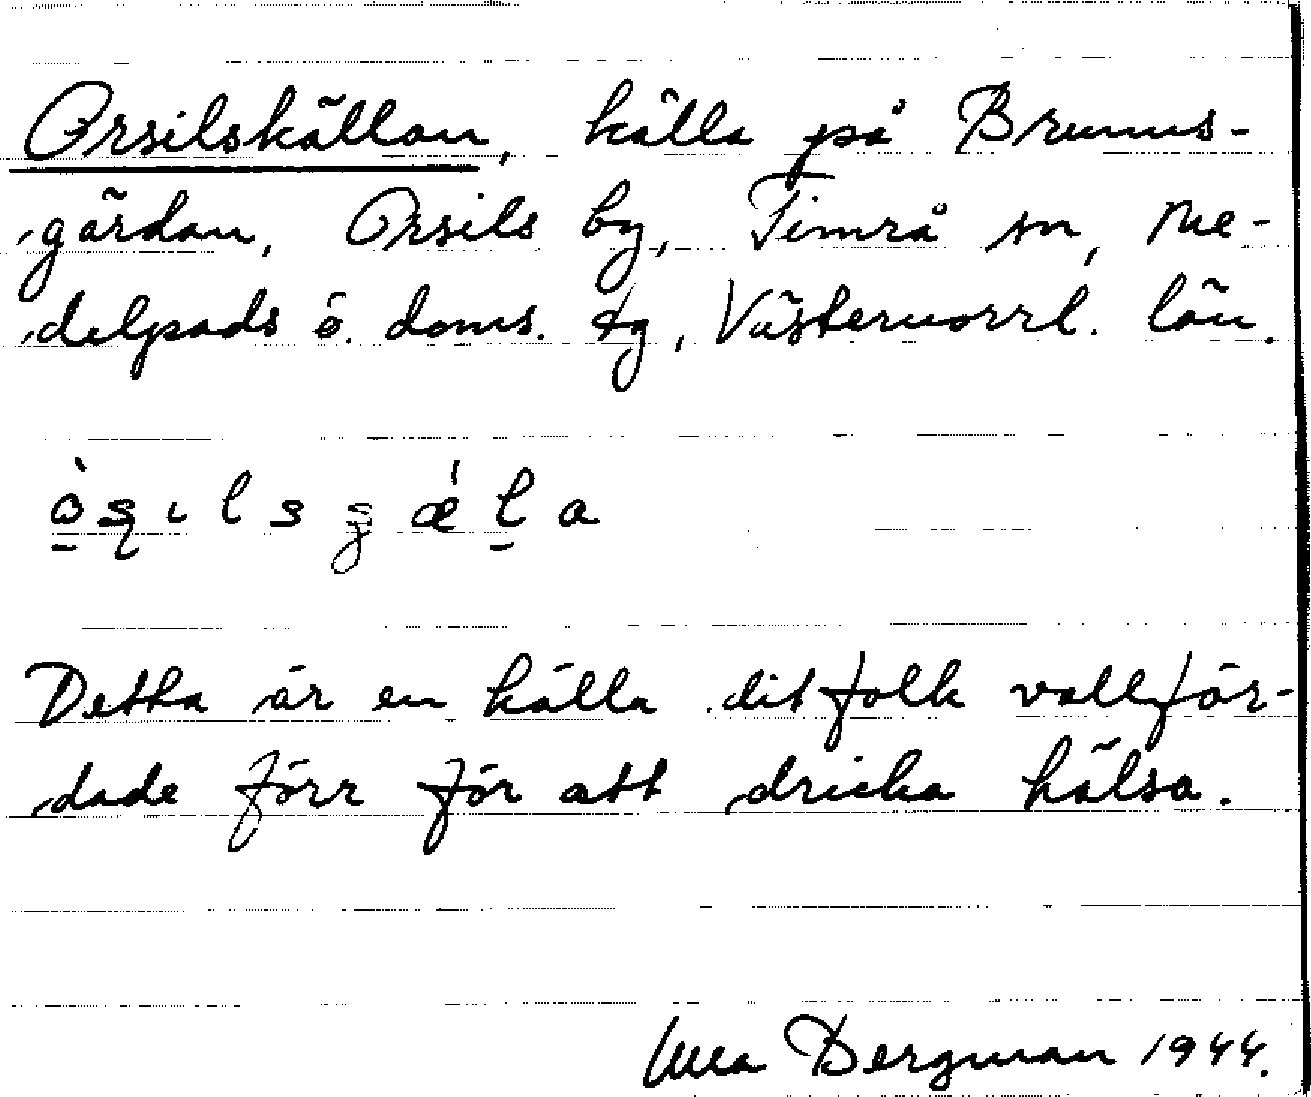 Orsilskällan, källa på Brunns-
gärdan, Orsils by, Timrå sn, Me-
delpads ö. doms. tg, Västernorrl. län.
Detta är en källa dit folk vallfär-
dade förr för att dricka hälsa.
Bergman 1944.